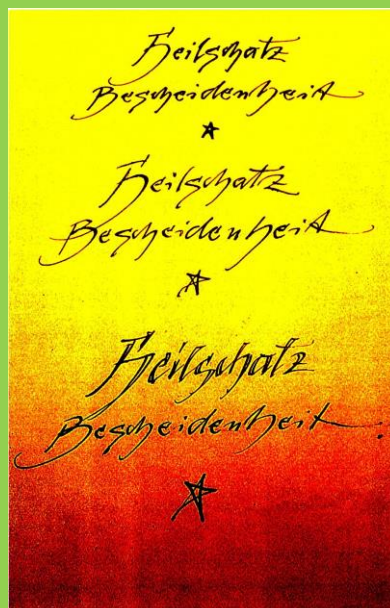 Heilschatz
Bescheidenheit
Heilschatz
Bescheidenheit
Heilschatz
Bescheidenheit